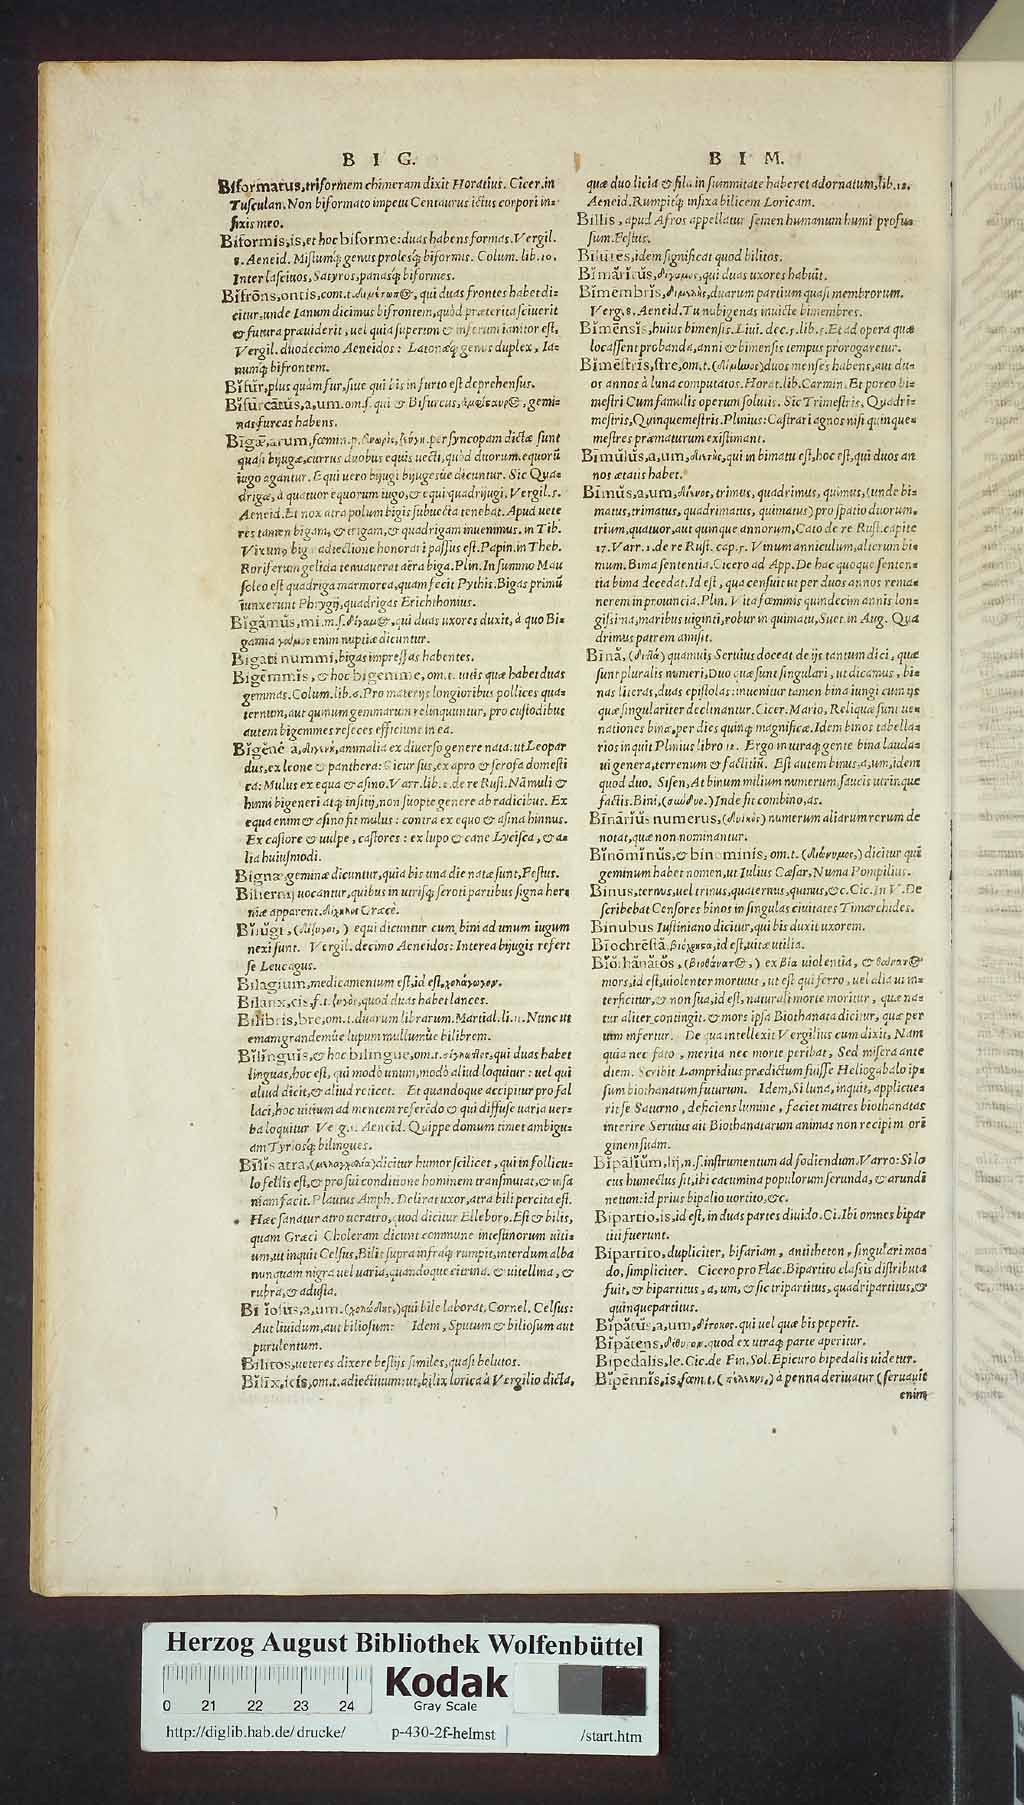 B I G.
Biformatus, triformem chimeram dixit Horatius. Cicer. in
Tusculan. Non biformato impetu Centaurus ictus corpori in-
fixis meo.
Biformis, is, et hoc biforme: duas habens formas. Vergil.
8. Aeneid. Mistumq́; genus prolesq́; biformis. Colum. lib. 10.
Inter lasciuos, Satyros, panasq́; biformes.
Bifrōns, ontis, com. t. qui duas frontes habet: di-
citur: unde Ianum dicimus bifrontem, quòd præterita sciuerit
& futura præuiderit, uel quia superum & inferum ianitor est,
Vergil. duodecimo Aeneidos: Latonæq́; genus duplex, Ia-
numq́; bifrontem.
Bifur, plus quàm fur, siue qui bis in furto est deprehensus.
Bifurcātus, a, um. om. s. qui & Bifurcus, gemi-
nas furcas habens.
Bigæ, arum, fœmin. p. per syncopam dictæ sunt
quasi bijugæ, currus duobus equis uecti, quòd duorum equorū
iugo agantur. Equi uero bijugi bijugesúe dicuntur. Sic Qua-
drigæ, à quatuor equorum iugo, & equi quadrijugi. Vergil. 5.
Aeneid. Et nox atra polum bigis subuecta tenebat. Apud uete
res tamen bigam, & trigam, & quadrigam inuenimus. in Tib.
Vix unq́; big adiectione honorari passus est. Papin. in Theb.
Roriferum gelida tenuauerat aëra biga. Plin. In summo Mau
soleo est quadriga marmorea, quam fecit Pythis. Bigas primū
iunxerunt Phrygij, quadrigas Erichthonius.
Bigāmus, mi. m. s. qui duas uxores duxit, à quo Bi-
gamia γάμος enim nuptiæ dicuntur.
Bigati nummi, bigas impressas habentes.
Bigēmmis, & hoc bigemme, om. t. uitis quæ habet duas
gemmas. Colum. lib. 4. Pro materijs longioribus pollices qua-
ternūm, aut quinūm gemmarum relinquuntur, pro custodibus
autem bigemmes reseces efficiunt in ea.
Bigene a, animalia ex diuerso genere nata: ut Leopar
dus, ex leone & panthera: sicur sus, ex apro & scrofa domesti
ca: Mulus ex equa & asino. Varr. lib. 2. de re Rust. Nā muli &
hinni bigeneri atq́; insitij, non suopte genere ab radicibus. Ex
equa enim & asino fit mulus: contra ex equo & asina hinnus.
Ex castore & uulpe, castores: ex lupo & cane Lycisca, & a-
lia huiusmodi.
Bignæ geminæ dicuntur, quia bis una die natæ sunt, Festus.
Bihernij uocantur, quibus in utrisq́; scroti partibus signa her-
niæ apparent. Græcè.
Bijugi, equi dicuntur cum, bini ad unum iugum
nexi sunt. Vergil. decimo Aeneidos: Interea bijugis refert
se Leucagus.
Bilagium, medicamentum est, id est,
Bilanx, cis, f. t. quod duas habet lances.
Bilibris, bre, om. t. duarum librarum. Martial. li. 11. Nunc ut
emam grandemúe lupum mullumúe bilibrem.
Bilinguis, & hoc bilingue, om. t. qui duas habet
linguas, hoc est, qui modò unum, modò aliud loquitur: uel qui
aliud dicit, & aliud reticet. Et quandoque accipitur pro fal
laci, hoc uitium ad mentem referēdo & qui diffuse uaria uer-
ba loquitur Verg. 1. Aeneid. Quippe domum timet ambigu-
am Tyriosq́; bilingues.
Bilis atra, dicitur humor scilicet, qui in follicu-
lo fellis est, & pro sui conditione hominem transmutat, & insa
niam facit. Plautus Amph. Delirat uxor, atra bili percita est.
Hæc sanatur atro ueratro, quod dicitur Elleborꝰ. Est & bilis,
quam Græci Choleram dicunt commune intestinorum uiti-
um, ut inquit Celsus, Bilis supra infraq́; rumpit, interdum alba
nunquam nigra uel uaria, quandoque citrina. & uitellina, &
rubra, & adusta.
Bi iosus, a, um. qui bile laborat, Cornel. Celsus:
Aut liuidum, aut biliosum: Idem, Sputum & biliosum aut
purulentum.
Bilitos, ueteres dixere bestijs similes, quasi belutos.
Bilix, icis, om. t. adiectiuum: ut, bilix lorica à Vergilio dicta,
B I M.
quæ duo licia & fila in summitate haberet adornatum, lib. 12.
Aeneid. Rumpitq́; infixa bilicem Loricam.
Billis, apud Afros appellatur semen humanum humi profu-
sum. Festus.
Bilutes, idem significat quod bilitos.
Bimăritus, δίγαμος, qui duas uxores habuit.
Bimembris, duarum partium quasi membrorum.
Verg. 8. Aeneid. Tu nubigenas inuicte bimembres.
Bimēnsis, huius bimensis. Liui. dec. 5. lib. 5. Et ad opera quæ
locassent probanda, anni & bimensis tempus prorogaretur.
Bimēstris, stre, om. t. duos menses habens, aut du-
os annos à luna computatos. Horat. lib. Carmin. Et porco bi-
mestri Cum famulis operum solutis. Sic Trimestris, Quadri-
mestris, Quinquemestris. Plinius: Castrari agnos nisi quinque-
mestres præmaturum existimant.
Bimulus, a, um, qui in bimatu est, hoc est, qui duos an
nos ætatis habet.
Bimus, a, um, trimus, quadrimus, quimus, (unde bi-
matus, trimatus, quadrimatus, quimatus) pro spatio duorum,
trium, quatuor, aut quinque annorum, Cato de re Rust. capite
17. Varr. 1. de re Rust. cap. 5. Vinum anniculum, alterum bi-
mum. Bima sententia. Cicero ad App. De hac quoque senten-
tia bima decedat. Id est, qua censuit ut per duos annos rema-
nerem in prouincia. Plin. Vita fœminis quindecim annis lon-
gissima, maribus uiginti, robur in quimatu, Suet. in Aug. Qua
drimus patrem amisit.
Bina, quamuis Seruius doceat de ijs tantum dici, quæ
sunt pluralis numeri, Duo quæ sunt singulari, ut dicamus, bi-
nas literas, duas epistolas: inuenitur tamen bina iungi cum ijs
quæ singulariter declinantur. Cicer. Mario, Reliquæ sunt ue-
nationes binæ, per dies quinq́; magnificæ. Idem binos tabella-
rios inquit Plinius libro 12. Ergo in utraq́; gente bina lauda-
ui genera, terrenum & factitiū. Est autem binus, a, um, idem
quod duo. Sisen, At binum milium numerum, faucis utrinque
factis. Bini, Inde fit combino, as.
Binarius numerus, numerum aliarum rerum de
notat, quæ non nominantur.
Binominus, & binominis, om. t. dicitur qui
geminum habet nomen, ut Iulius Cæsar, Numa Pompilius.
Binus, ternus, uel trinus, quaternus, quinus, &c. Cic. In V. De
scribebat Censores binos in singulas ciuitates Timarchides.
Binubus Iustiniano dicitur, qui bis duxit uxorem.
Biochrēsta, id est, uitæ utilia.
Biothanătos, ex βία uiolentia, &
mors, id est, uiolenter mortuus, ut est qui ferro, uel alia ui in-
terficitur, & non sua, id est, naturali morte moritur, quæ na-
tur aliter contingit. & mors ipsa Biothanata dicitur, quæ per
uim infertur. De qua intellexit Vergilius cum dixit, Nam
quia nec fato, merita nec morte peribat, Sed misera ante
diem. Scribit Lampridius prædictum fuisse Heliogabalo ip-
sum biothanatum futurum. Idem, Si luna, inquit, applicue-
rit se Saturno, deficiens lumine, faciet matres biothanatas
interire Seruius ait Biothanatarum animas non recipi in orī
ginem suam.
Bipălium, lij, n. s. instrumentum ad fodiendum. Varro: Si lo
cus humectus sit, ibi cacumina populorum serunda, & arundi
netum: id prius bipalio uortito, &c.
Bipartio, is, id est, in duas partes diuido. Ci. Ibi omnes bipar
titi fuerunt.
Bipartito, dupliciter, bifariam, antitheton, singulari mo-
do, simpliciter. Cicero pro Flac. Bipartito classis distributa
fuit, & bipartitus, a, um, & sic tripartitus, quadripartitus, &
quinquepartitus.
Bipătus, a, um, δίτοκος. qui uel quæ bis peperit.
Bipătens, quod ex utraq́; parte aperitur.
Bipedalis, le. Cic. de Fin. Sol. Epicuro bipedalis uidetur.
Bipēnnis, is, fœm. t. à penna deriuatur (seruauit
enim
Herzog August Bibliothek Wolfenbüttel
Kodak
Gray Scale
0 21 22 23 24
http://diglib.hab.de/drucke/ p-430-2f-helmst /start.htm